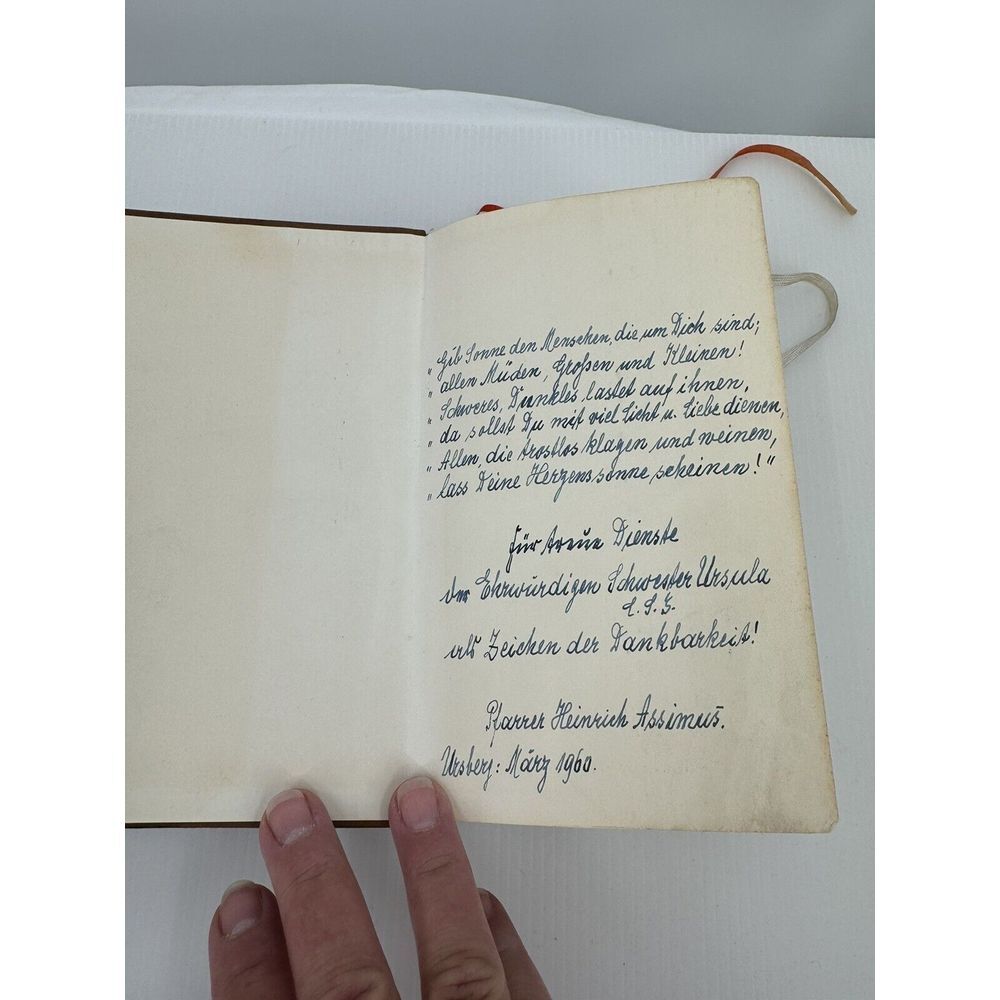 "Gib Sonne den Menschen, die um Dich sind;
"allen Müden, Großen und Kleinen!
"Schweres, Dunkles lastet auf ihnen,
"da sollst Du mit viel Licht u. Liebe dienen,
"Allen, die trostlos klagen und weinen,
"lass Deine Herzenssonne scheinen!"
Für treue Dienste
der Ehrwürdigen Schwester Ursula
als Zeichen der Dankbarkeit!
Pfarrer Heinrich Assimus.
Ursberg: März 1960.